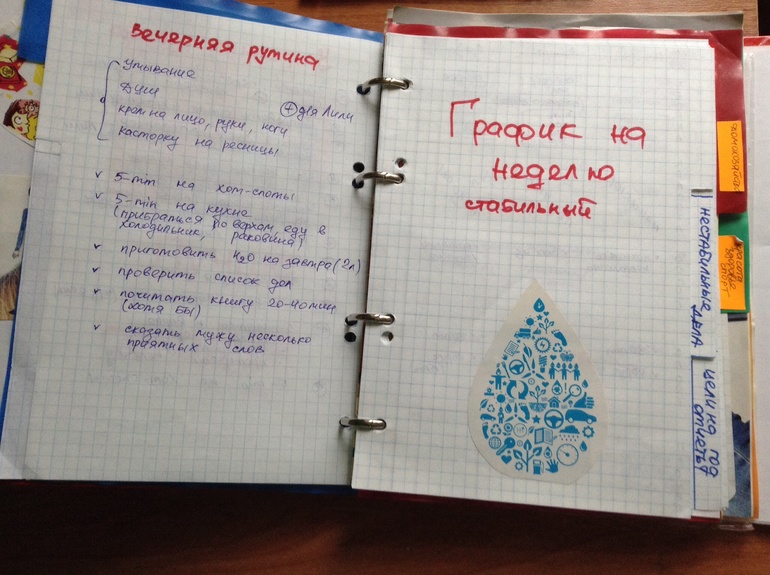 вечерняя рутина
умывание
Душ
+ для Лили
крем на лицо, руки, ноги
касторку на ресницы
5-min на хот-споты
5-min на кухне
(прибраться по верхам, еду в
холодильник, раковина)
приготовить H2O на завтра (2л)
проверить список дел
почитать книгу 20-40мин
(хотя бы)
сказать мужу несколько
приятных слов
График на
неделю
стабильный
красота
здоровье
спорт
НЕСТАБИЛЬНЫЕ
ДЕЛА
цели на год
отчеты